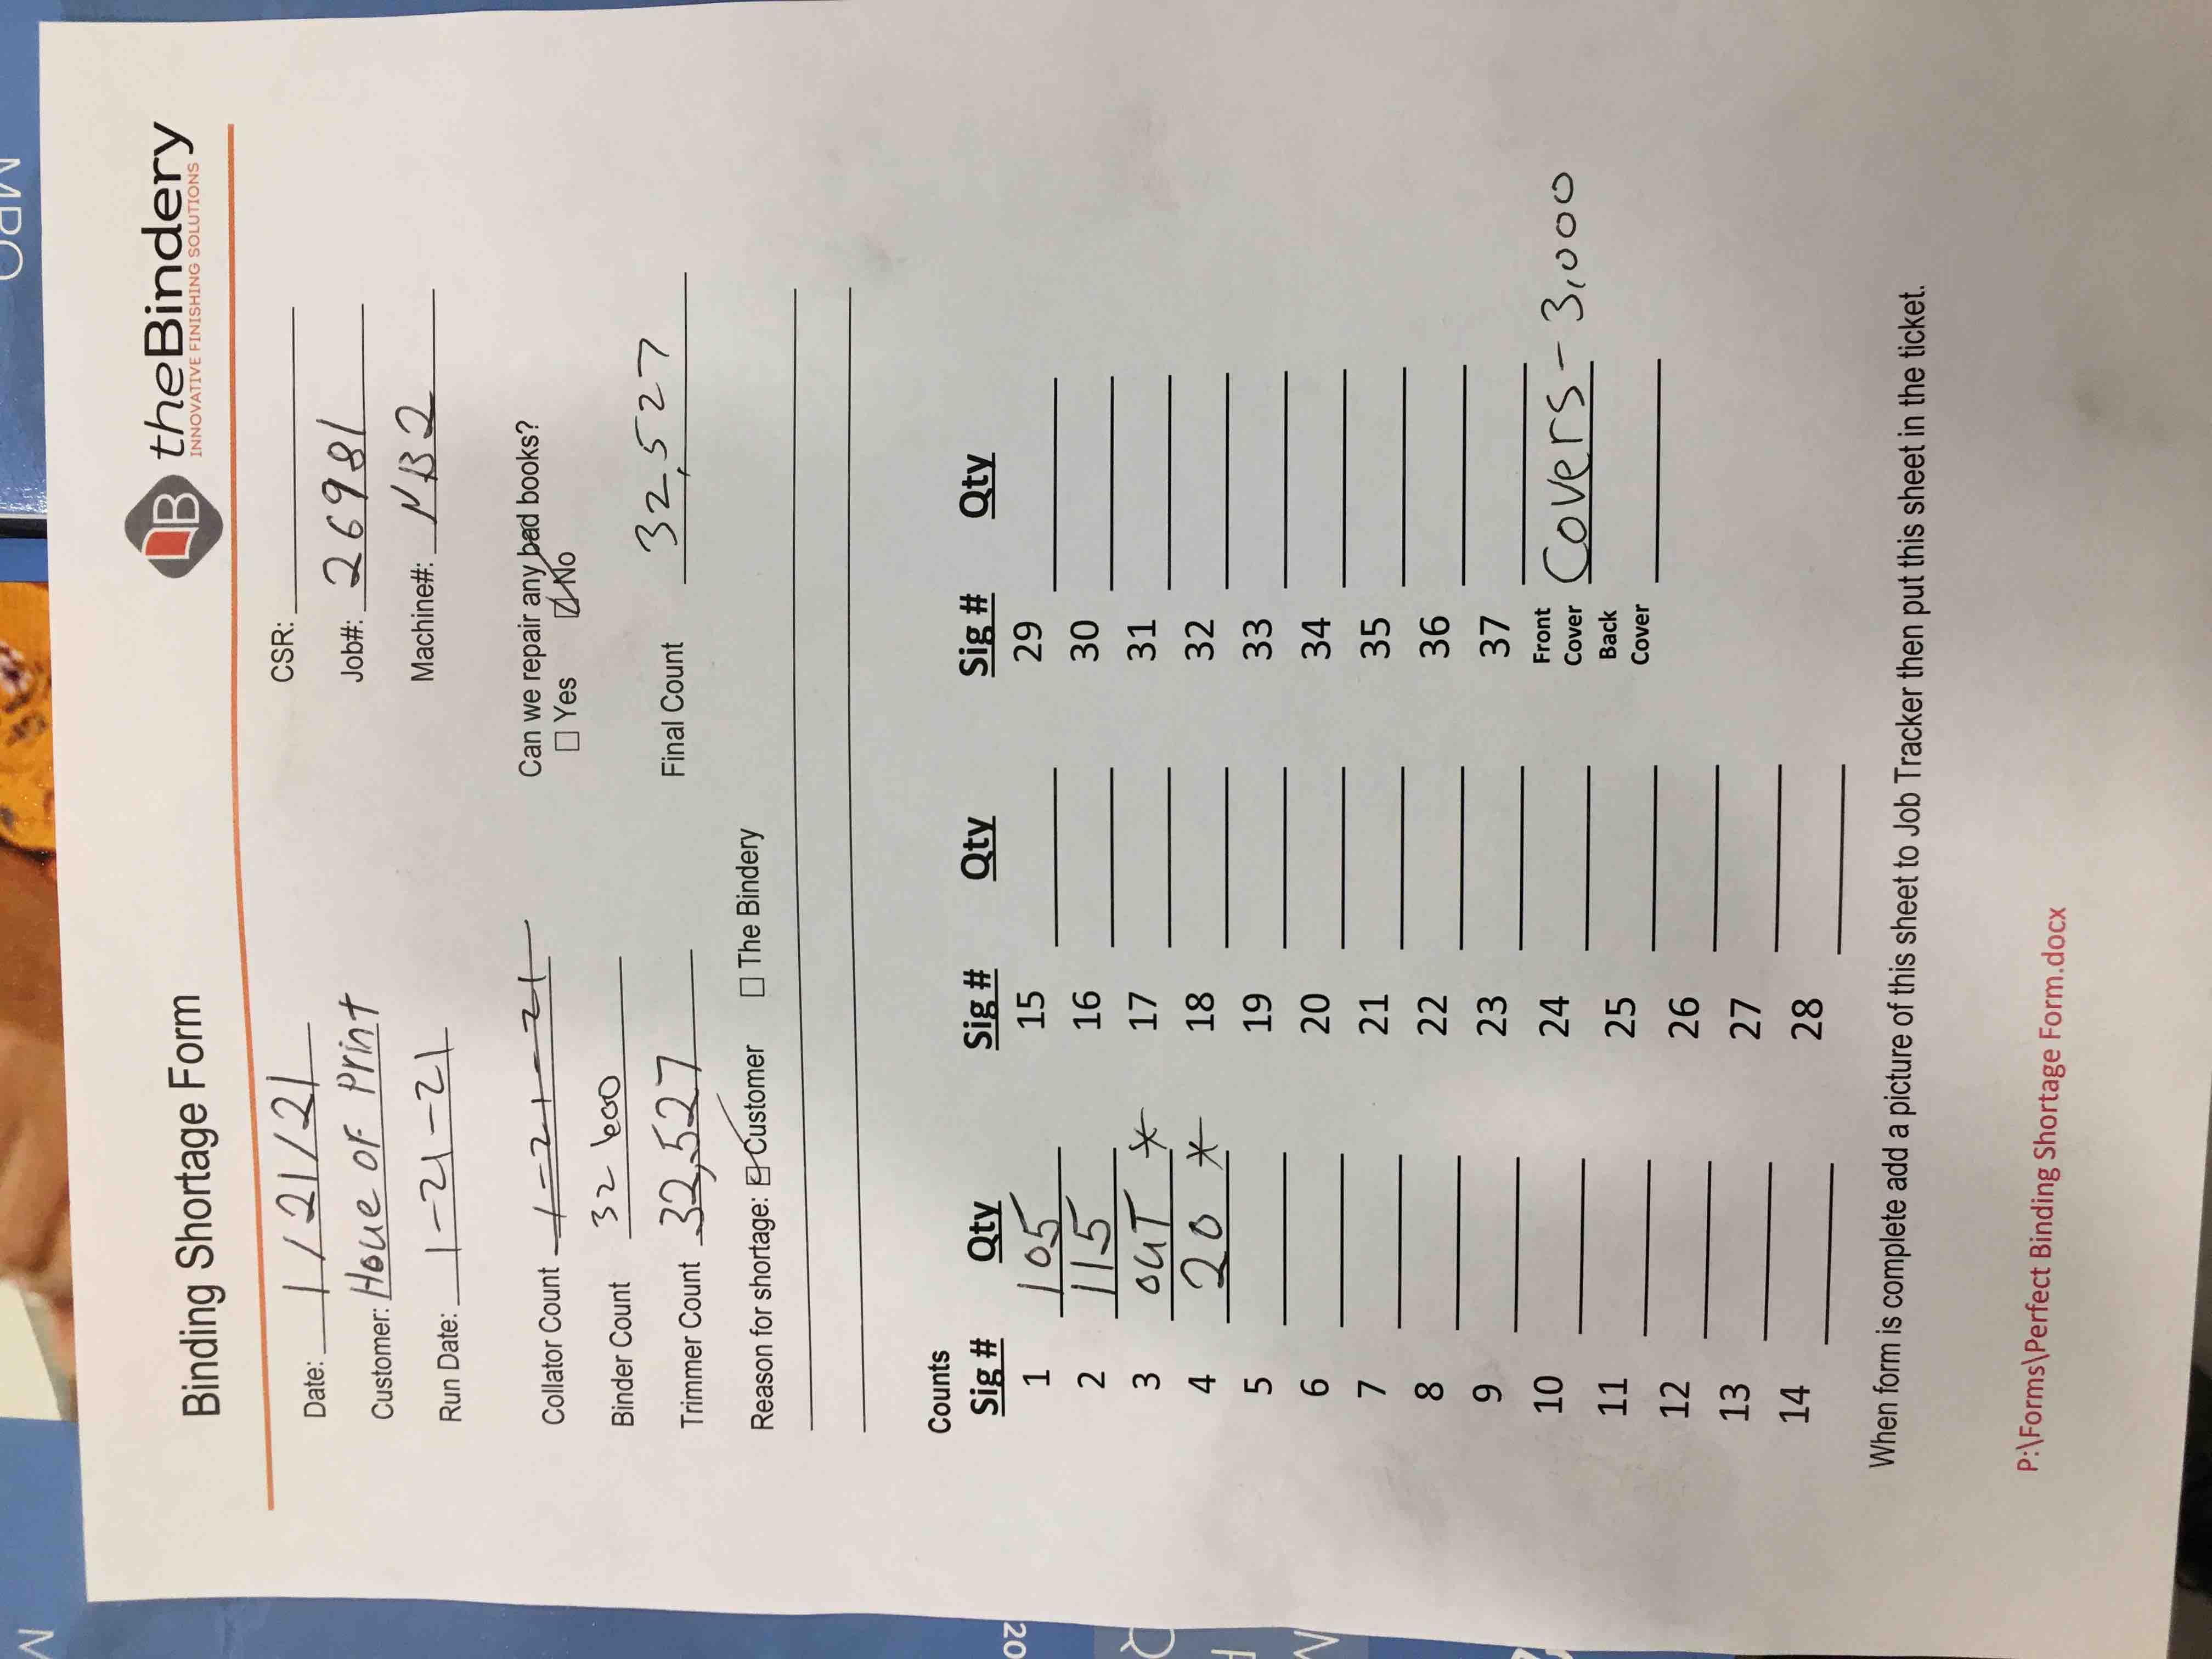 Binding Shortage Form
theBindery
INNOVATIVE FINISHING SOLUTIONS
Date: 1/21/21
CSR:
Customer: Houe OF Print
Job#: 26981
Run Date: 1-21-21
Machine#: NB2
Collator Count 1-21-21
Can we repair any bad books?
☐ Yes ☑ No
Binder Count 32 600
Trimmer Count 32,527
Final Count 32,527
Reason for shortage: ☑ Customer ☐ The Bindery
Counts
Sig # Qty Sig # Qty Sig # Qty
1 105 15 29
2 115 16 30
3 OUT * 17 31
4 20 * 18 32
5 19 33
6 20 34
7 21 35
8 22 36
9 23 37
10 24 Front Cover Covers - 3,000
11 25 Back Cover
12 26
13 27
14 28
When form is complete add a picture of this sheet to Job Tracker then put this sheet in the ticket.
P:\Forms\Perfect Binding Shortage Form.docx